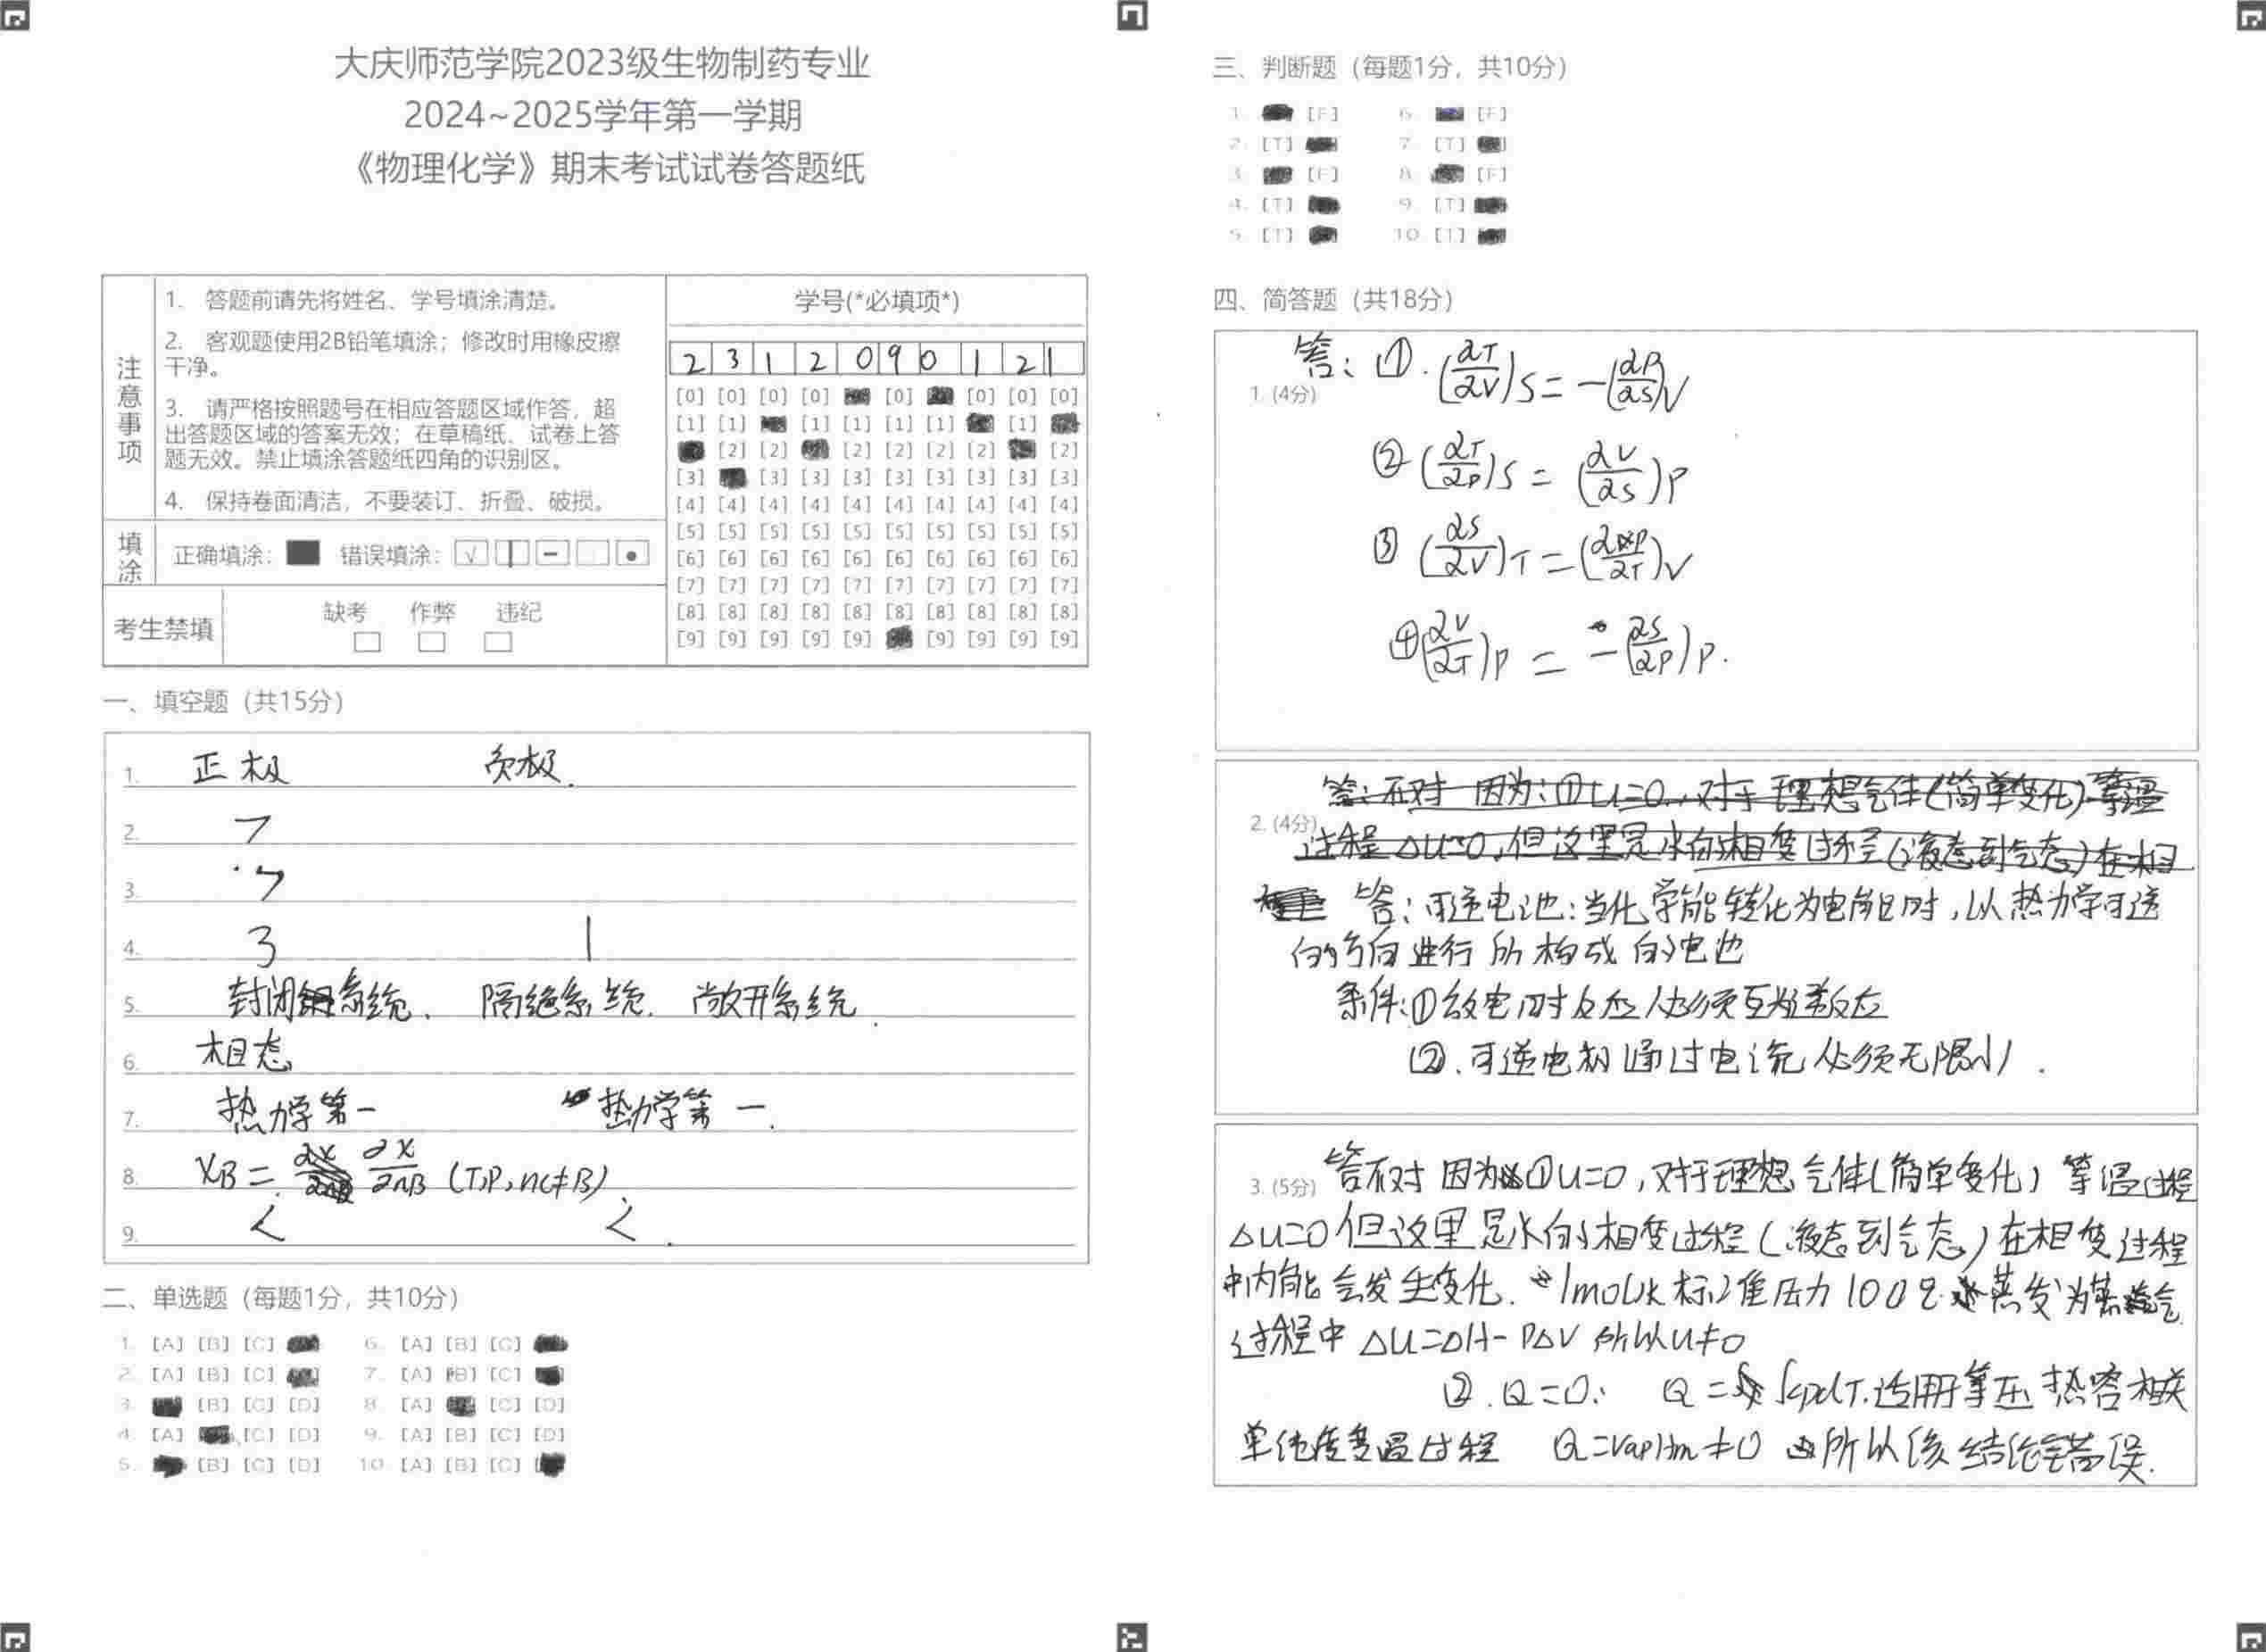 大庆师范学院2023级生物制药专业
2024~2025学年第一学期
《物理化学》期末考试试卷答题纸
注意事项
1. 答题前请先将姓名、学号填涂清楚。
2. 客观题使用2B铅笔填涂；修改时用橡皮擦
干净。
3. 请严格按照题号在相应答题区域作答，超
出答题区域的答案无效；在草稿纸、试卷上答
题无效。禁止填涂答题纸四角的识别区。
4. 保持卷面清洁，不要装订、折叠、破损。
填涂
正确填涂： 错误填涂：
考生禁填
缺考 作弊 违纪
学号(*必填项*)
2 3 1 2 0 9 0 1 2 1
[0] [0] [0] [0] [0] [0] [0] [0]
[1] [1] [1] [1] [1] [1] [1]
[2] [2] [2] [2] [2] [2] [2]
[3] [3] [3] [3] [3] [3] [3] [3] [3]
[4] [4] [4] [4] [4] [4] [4] [4] [4] [4]
[5] [5] [5] [5] [5] [5] [5] [5] [5] [5]
[6] [6] [6] [6] [6] [6] [6] [6] [6] [6]
[7] [7] [7] [7] [7] [7] [7] [7] [7] [7]
[8] [8] [8] [8] [8] [8] [8] [8] [8] [8]
[9] [9] [9] [9] [9] [9] [9] [9] [9]
一、填空题（共15分）
1. 正极 负极.
2. 7
3. 7
4. 3 1
5. 封闭系统. 隔绝系统. 敞开系统.
6. 相态
7. 热力学第一 热力学第一.
8. XB = ∂X/∂nB (T,P,nc≠B).
9. < < .
二、单选题（每题1分，共10分）
1. [A] [B] [C] 6. [A] [B] [C]
2. [A] [B] [C] 7. [A] [B] [C]
3. [B] [C] [D] 8. [A] [C] [D]
4. [A] [C] [D] 9. [A] [B] [C] [D]
5. [B] [C] [D] 10. [A] [B] [C]
三、判断题（每题1分，共10分）
1. [F] 6. [F]
2. [T] 7. [T]
3. [F] 8. [F]
4. [T] 9. [T]
5. [T] 10. [T]
四、简答题（共18分）
1. (4分)
答：①. (∂T/∂V)S = -(∂P/∂S)V
② (∂T/∂P)S = (∂V/∂S)P
③ (∂S/∂V)T = (∂P/∂T)V
④ (∂V/∂T)P = -(∂S/∂P)P.
2. (4分)
答：不对 因为：①U=0，对于理想气体(简单变化)等温
过程△U=0，但这里是水的相变过程(液态到气态)在相
答：可逆电池：当化学能转化为电能时，以热力学可逆
的方向进行所构成的电池
条件：①放电时反应必须互为逆反应
②.可逆电池通过电流必须无限小.
3. (5分) 答不对 因为①U=0，对于理想气体(简单变化)等温过程
△U=0但这里是水的相变过程(液态到气态)在相变过程
中内能会发生变化. 1mol水标准压力100℃蒸发为蒸气
过程中 △U=△H-P△V 所以U≠0
②.Q=0： Q=∫cpdT.适用等压热容相关
单纯变温过程 Q=vapHm≠0 所以该结论错误.